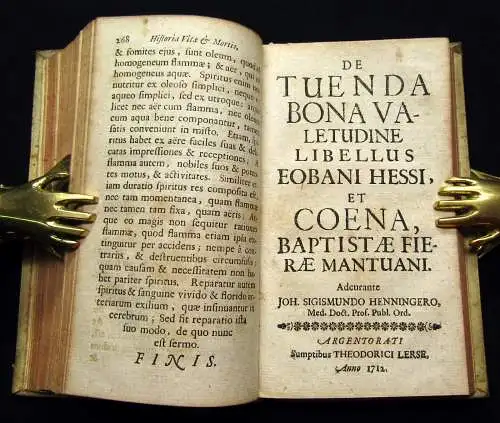 268 Historia Vitæ & Mortis,
& fomites ejus, sunt oleum, quod
homogeneum flammæ; & aer, qui est
homogeneus aquæ. Spiritus enim nec
nutritur ex oleoso simplici, neque ex
aqueo simplici, sed ex utroque: at
licet nec aër cum flamma, nec oleum
cum aqua bene componantur, tamen
satis conveniunt in misto. Etiam, Spi-
ritus habet ex aëre faciles suas & deli-
catas impressiones & receptiones, à
flamma autem, nobiles suos & poten-
tes motus, & activitates. Similiter et-
iam duratio spiritus res composita est,
nec tam momentanea, quam flammæ,
nec tamen tam fixa, quam aëris: At-
que eo magis non sequitur rationem
flammæ, quod flamma etiam ipsa ex-
tinguitur per accidens; nempe à con-
trariis, & destruentibus circumfusis,
quam causam & necessitatem non ha-
bet pariter spiritus. Reparatur autem
spiritus & sanguine vivido & florido
arteriarum exilium, quæ insinuantur in
cerebrum; Sed fit reparatio ista
suo modo, de quo nunc
est sermo.
FINIS.
DE
TUENDA
BONA VA-
LETUDINE
LIBELLUS
EOBANI HESSI,
ET
COENA,
BAPTISTÆ FIE-
RÆ MANTUANI.
Adcurante
JOH. SIGISMUNDO HENNINGERO,
Med. Doct. Prof. Publ. Ord.
ARGENTORATI
Sumptibus THEODORICI LERSE,
Anno 1712.